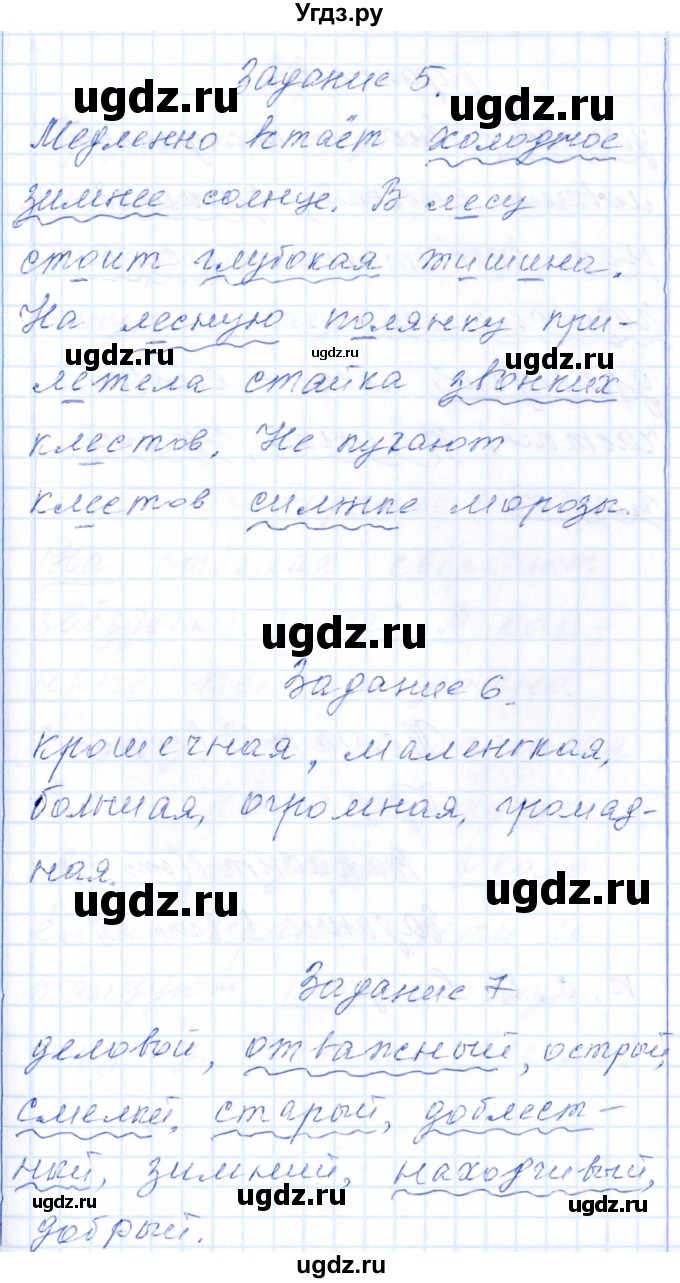 Угдз.ру
Задание 5.
ugdz.ru ugdz.ru
Медленно встаёт холодное
ugdz.ru ugdz.ru
зимнее солнце. В лесу
стоит глубокая тишина.
ugdz.ru ugdz.ru
На лесную полянку при-
ugdz.ru ugdz.ru ugdz.ru
летела стайка звонких
клестов. Не пугают
клестов сильные морозы.
ugdz.ru
Задание 6.
крошечная, маленькая,
большая, огромная, громад-
ная.
ugdz.ru ugdz.ru
Задание 7
деловой, отважный, острый,
смелый, старый, доблест-
ный, зимний, находчивый,
ugdz.ru ugdz.ru ugdz.ru
добрый.
ugdz.ru